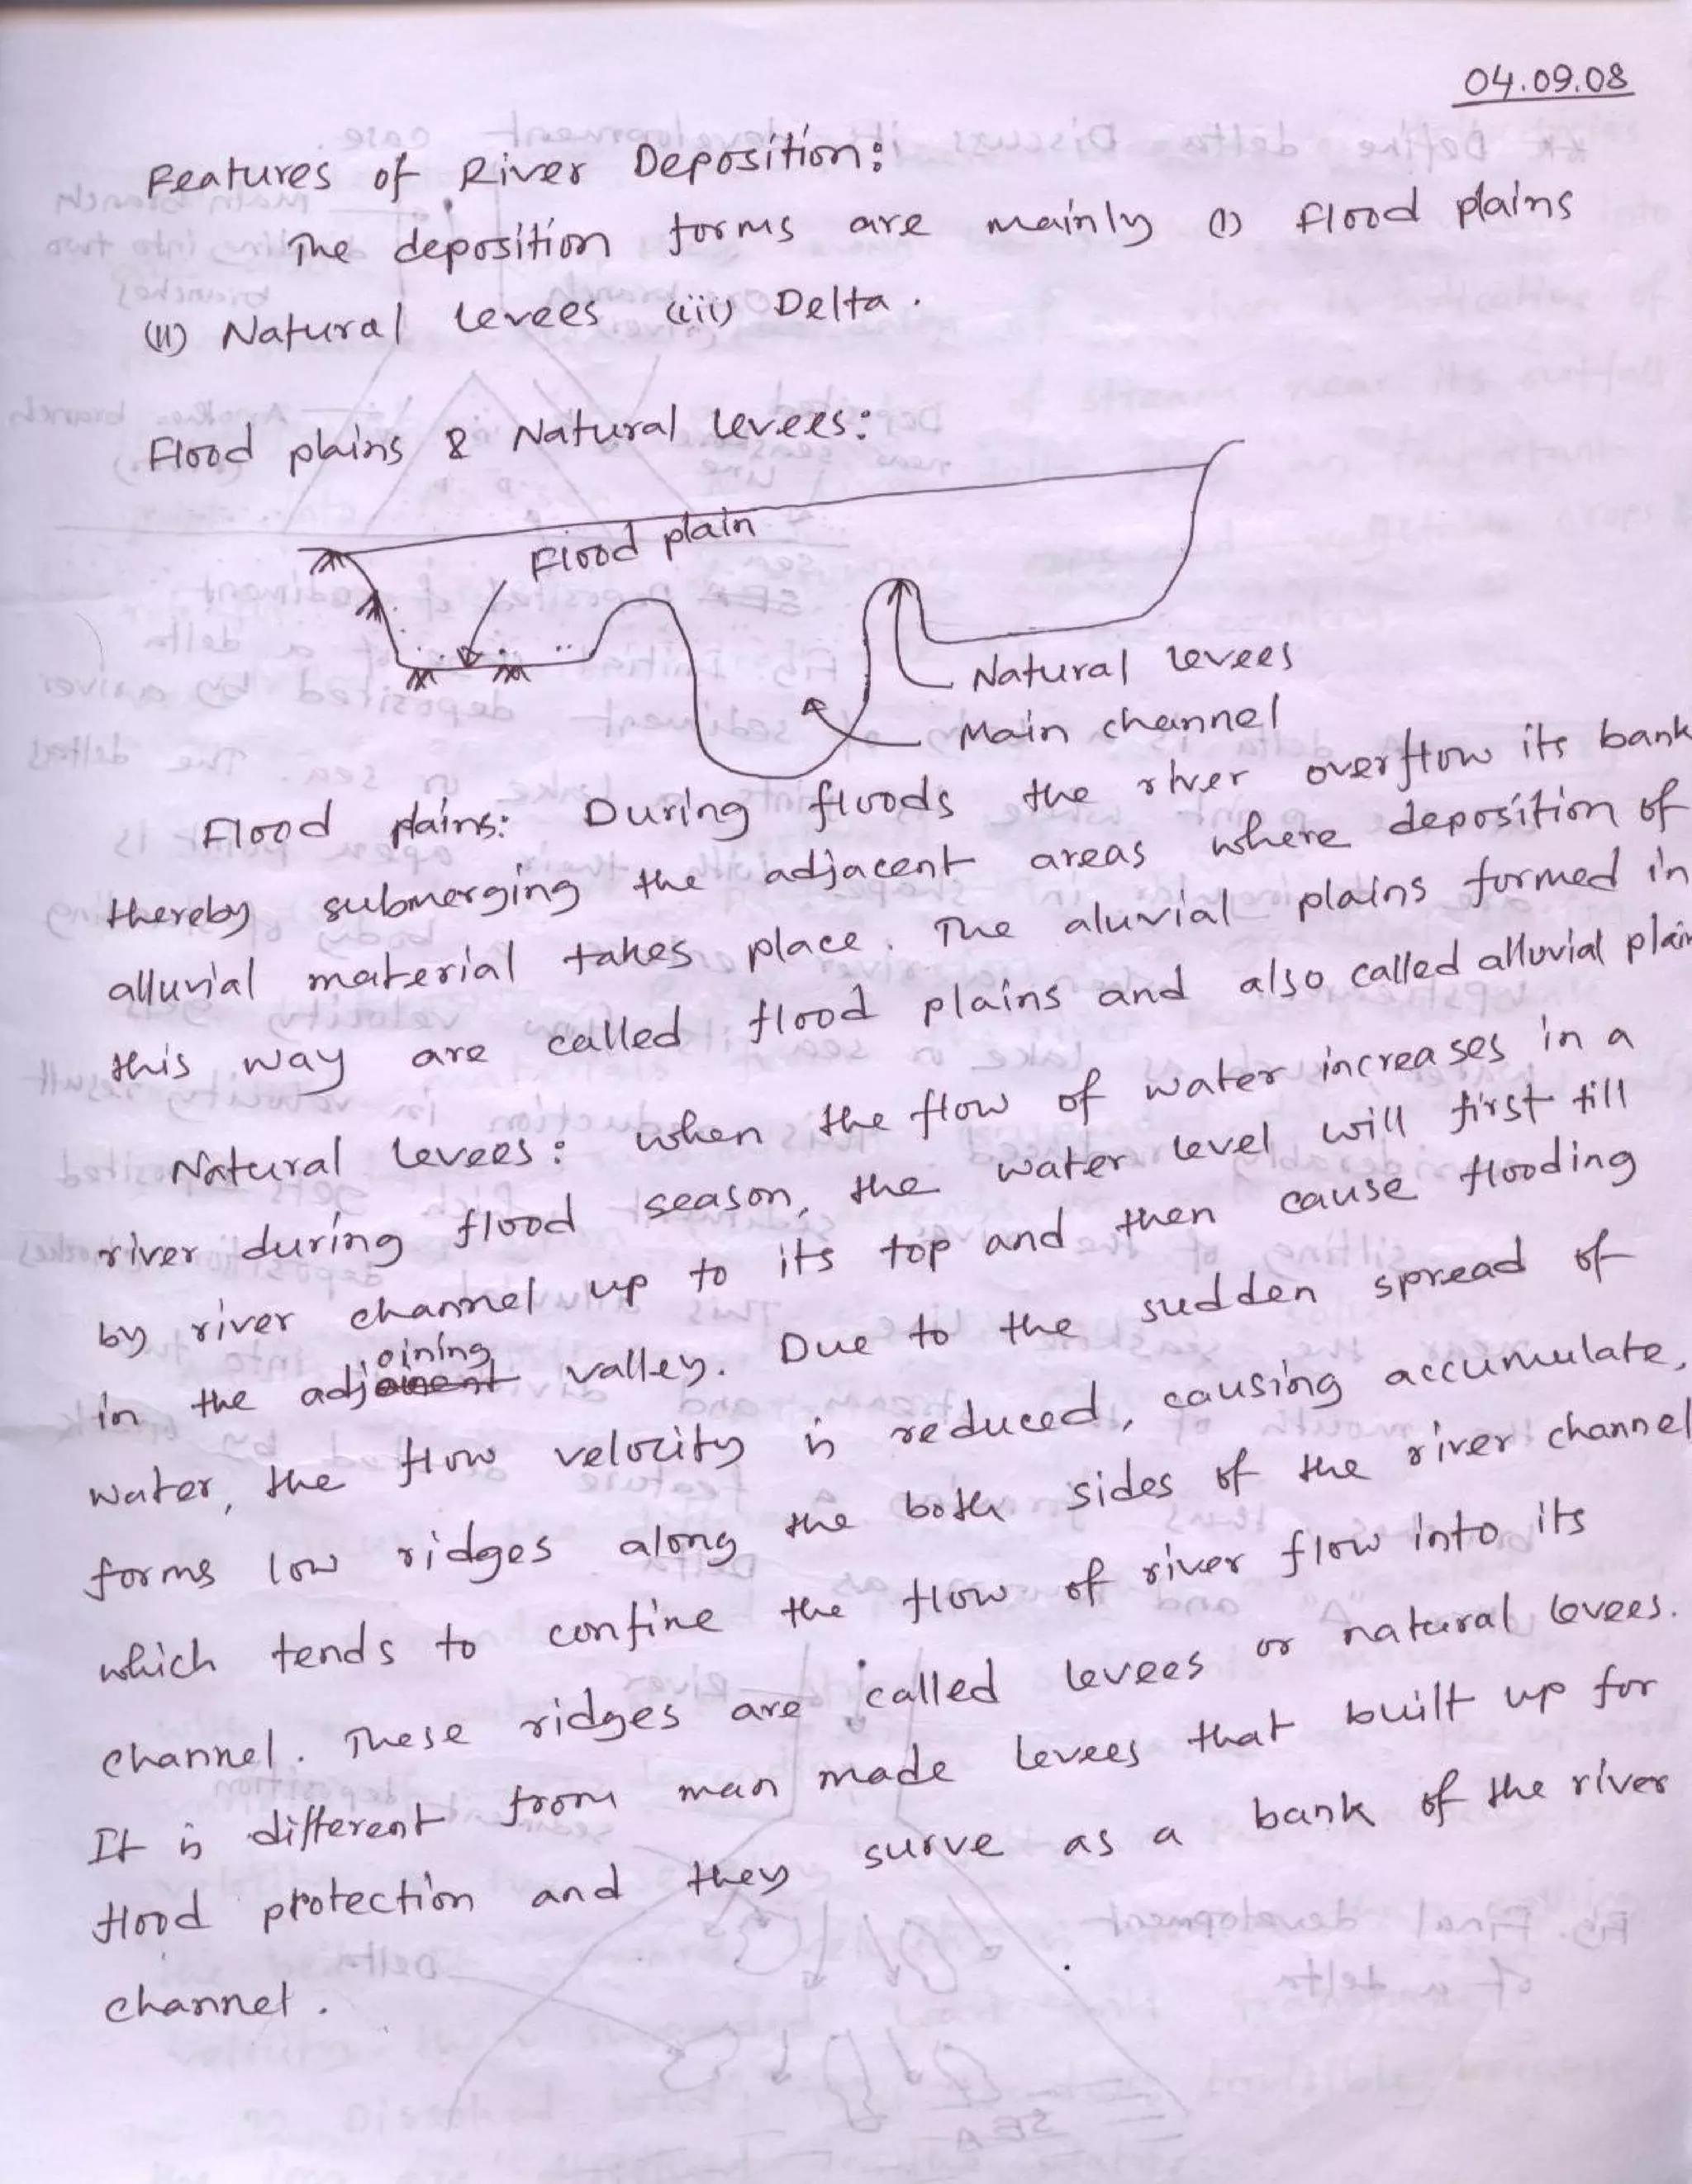 04.09.08
Features of River Deposition:
The deposition forms are mainly (I) Flood plains
(II) Natural Levees (iii) Delta.
Flood plains & Natural Levees:
Flood plain
Natural Levees
Main channel
Flood plains: During floods the river overflow its bank
thereby submerging the adjacent areas where deposition of
alluvial material takes place. The aluvial plains formed in
this way are called flood plains and also called alluvial plain
Natural Levees: when the flow of water increases in a
river during flood season, the water level will first fill
by river channel up to its top and then cause flooding
in the adjoining valley. Due to the sudden spread of
water, the flow velocity is reduced, causing accumulate,
forms low ridges along the both sides of the river channel
which tends to confine the flow of river flow into its
channel. These ridges are called levees or natural levees.
It is different from man made levees that built up for
flood protection and they surve as a bank of the river
channel.